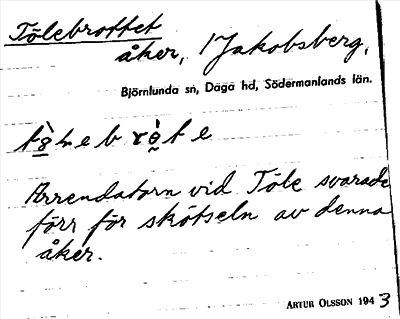 Tölebrottet
åker, 1 Jakobsberg,
Björnlunda sn, Daga hd, Södermanlands län.
Arrendatorn vid Töle svarade
förr för skötseln av denna
åker.
ARTUR OLSSON 1943